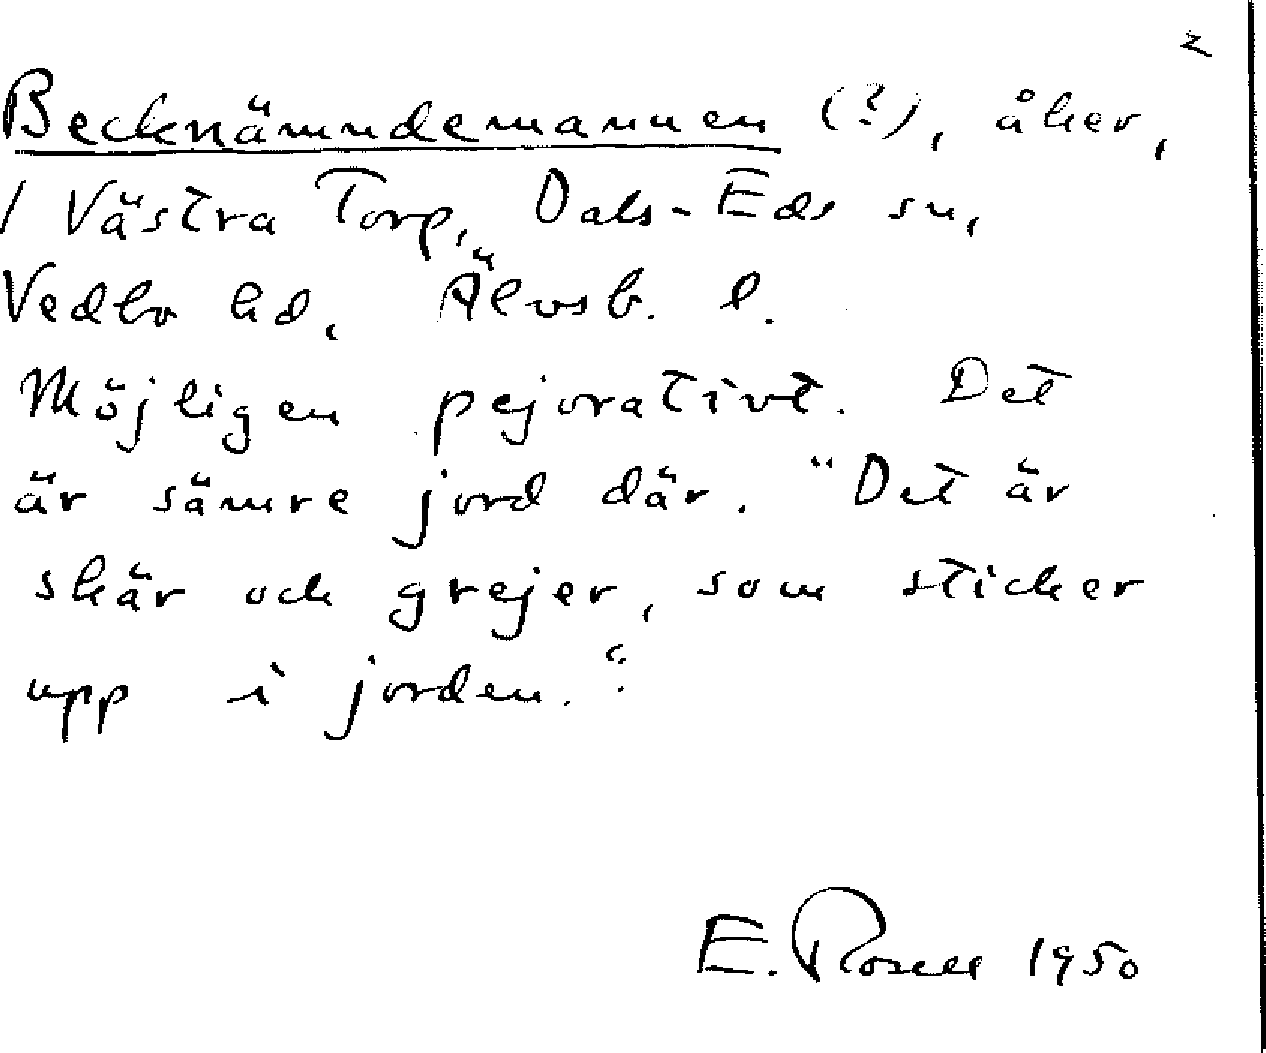 2
Becknämndemannen (?), åker,
/ Västra Torp, Dals-Eds sn,
Vedbo hd, Älvsb. l.
Möjligen pejorativt. Det
är sämre jord där. "Det är
skär och grejer, som sticker
upp i jorden."
E. Rosell 1950